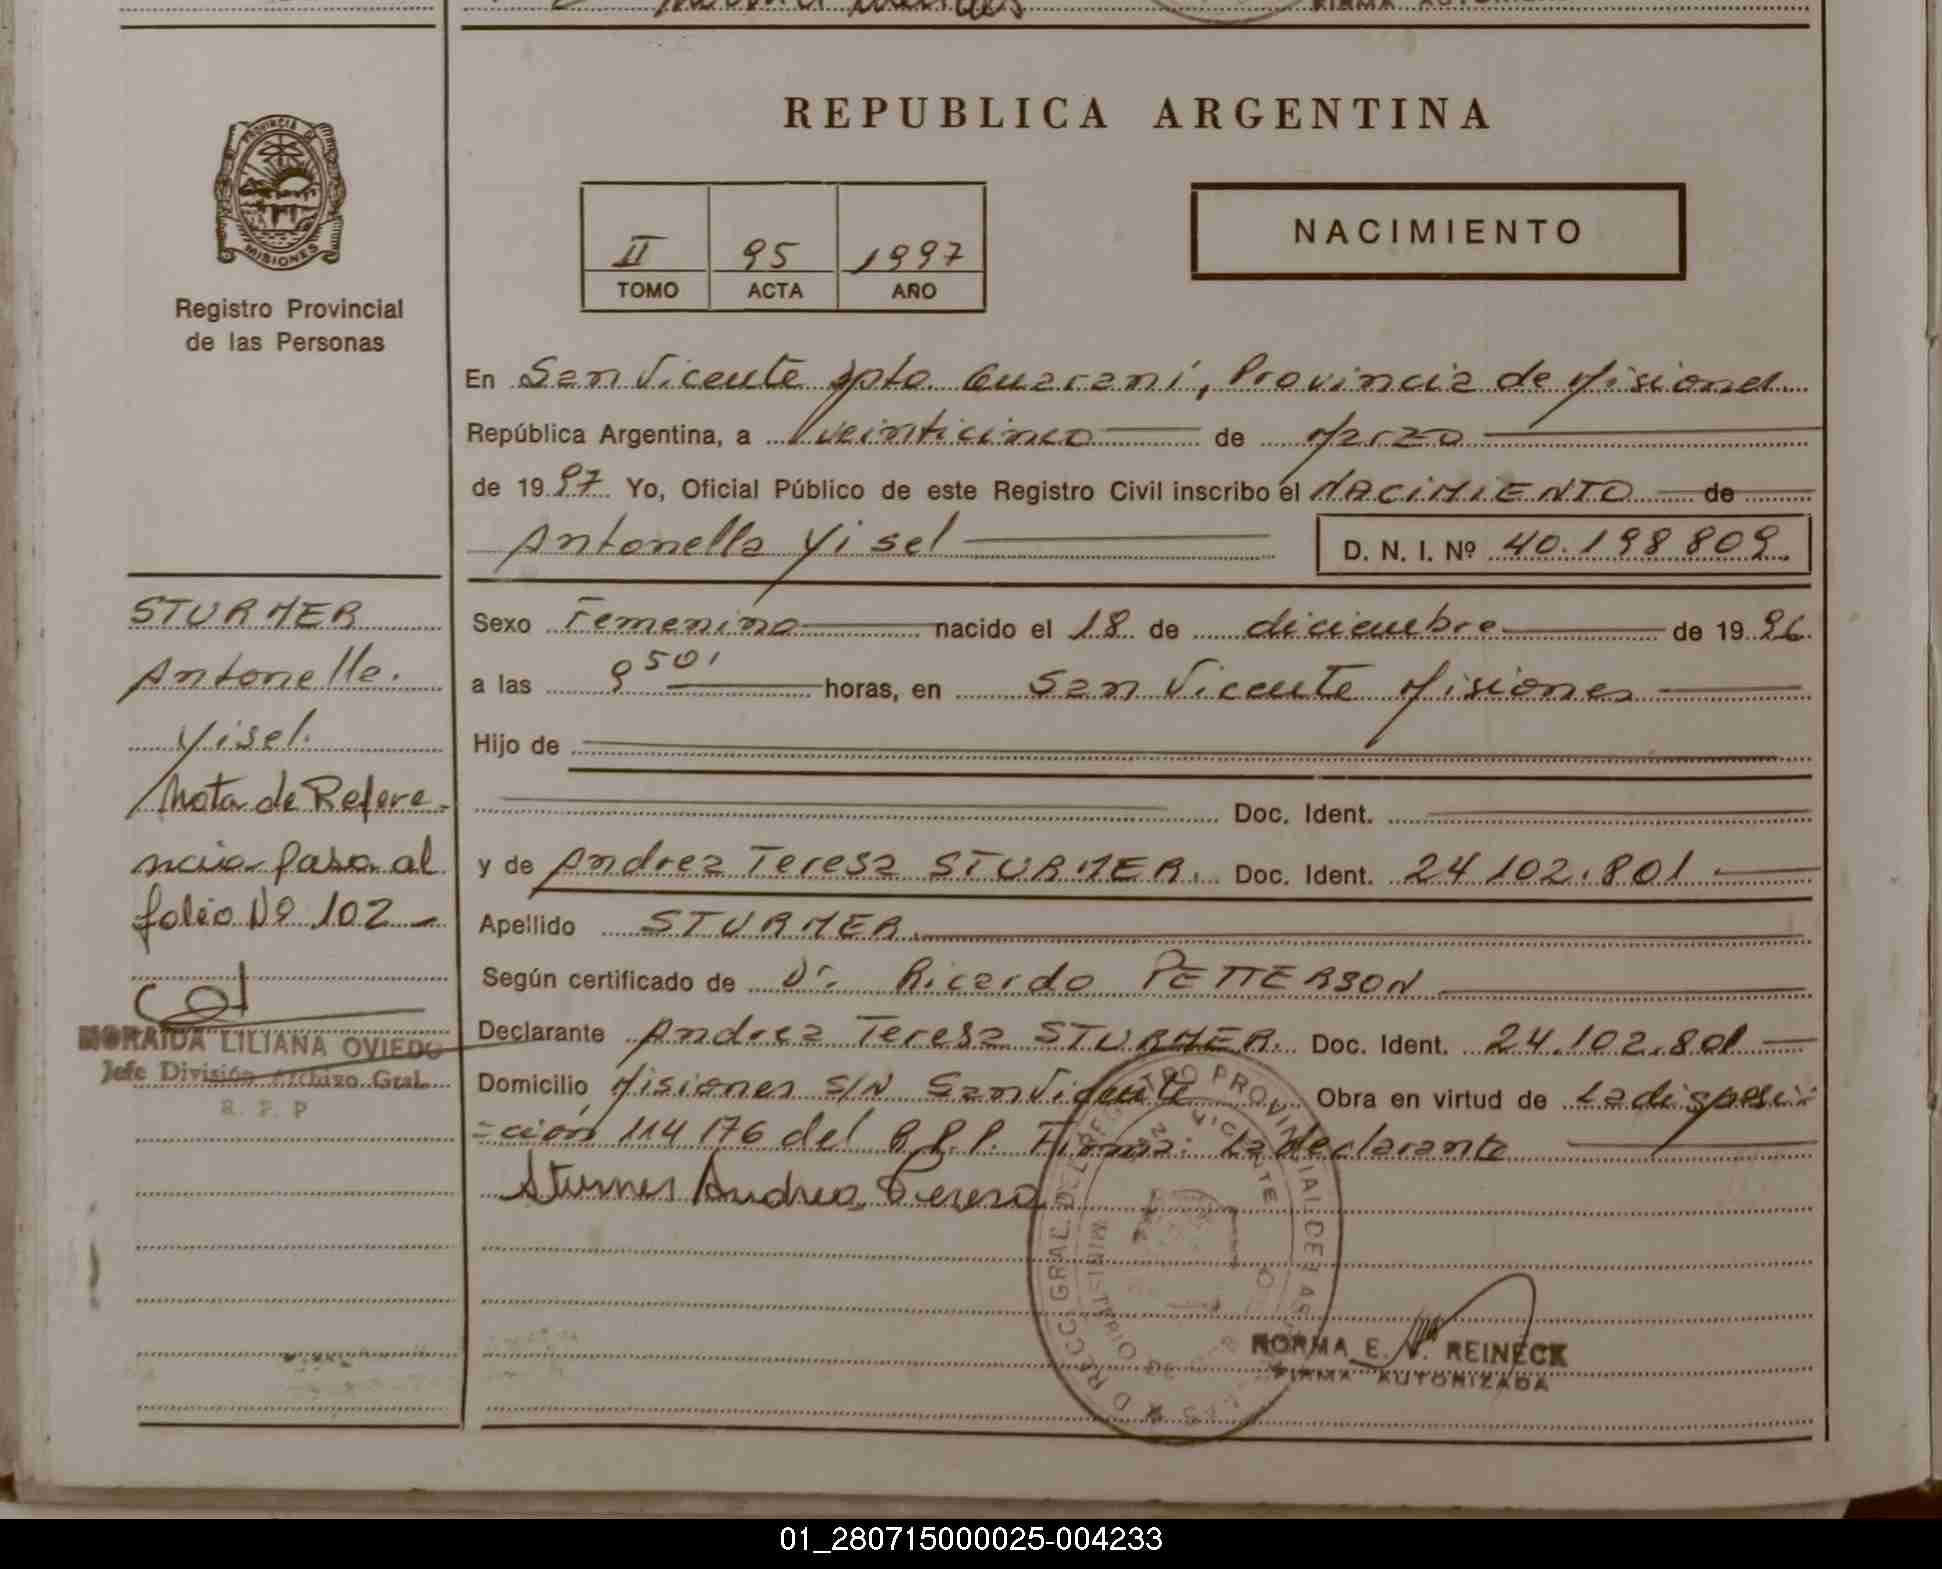 REPUBLICA ARGENTINA
PROVINCIA DE
MISIONES
Registro Provincial
de las Personas
II 95 1997
TOMO ACTA AÑO
NACIMIENTO
En San Vicente Dpto. Guaraní, Provincia de Misiones
República Argentina, a veinticinco de Marzo
de 1997 Yo, Oficial Público de este Registro Civil inscribo el NACIMIENTO de
Antonella Yisel D. N. I. Nº 40.198809
Sexo Femenino nacido el 18 de diciembre de 1996
a las 9 50' horas, en San Vicente Misiones
Hijo de
Doc. Ident.
y de Andrea Teresa STURMER. Doc. Ident. 24.102.801
Apellido STURMER.
Según certificado de Dr. Ricardo PETTERSON
Declarante Andrea Teresa STURMER. Doc. Ident. 24.102.801
Domicilio Misiones S/N San Vicente Obra en virtud de La disposi-
-ción 114/76 del R.P.P. Firma: La declarante
Sturmer Andrea Teresa
NORMA E. REINECK
FIRMA AUTORIZADA
STURMER
Antonella.
Yisel.
Nota de Refere-
ncia pasa al
folio Nº 102 -
MORAIDA LILIANA OVIEDO
Jefe División Archivo Gral.
R. P. P
01_280715000025-004233